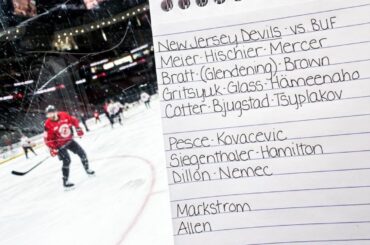 New Jersey Devils · vs BUF
Meier · Hischier · Mercer
Bratt · (Glendening) · Brown
Gritsyuk · Glass · Hämeenaho
Cotter · Bjugstad · Tsyplakov
Pesce · Kovacevic
Siegenthaler · Hamilton
Dillon · Nemec
Markstrom
Allen